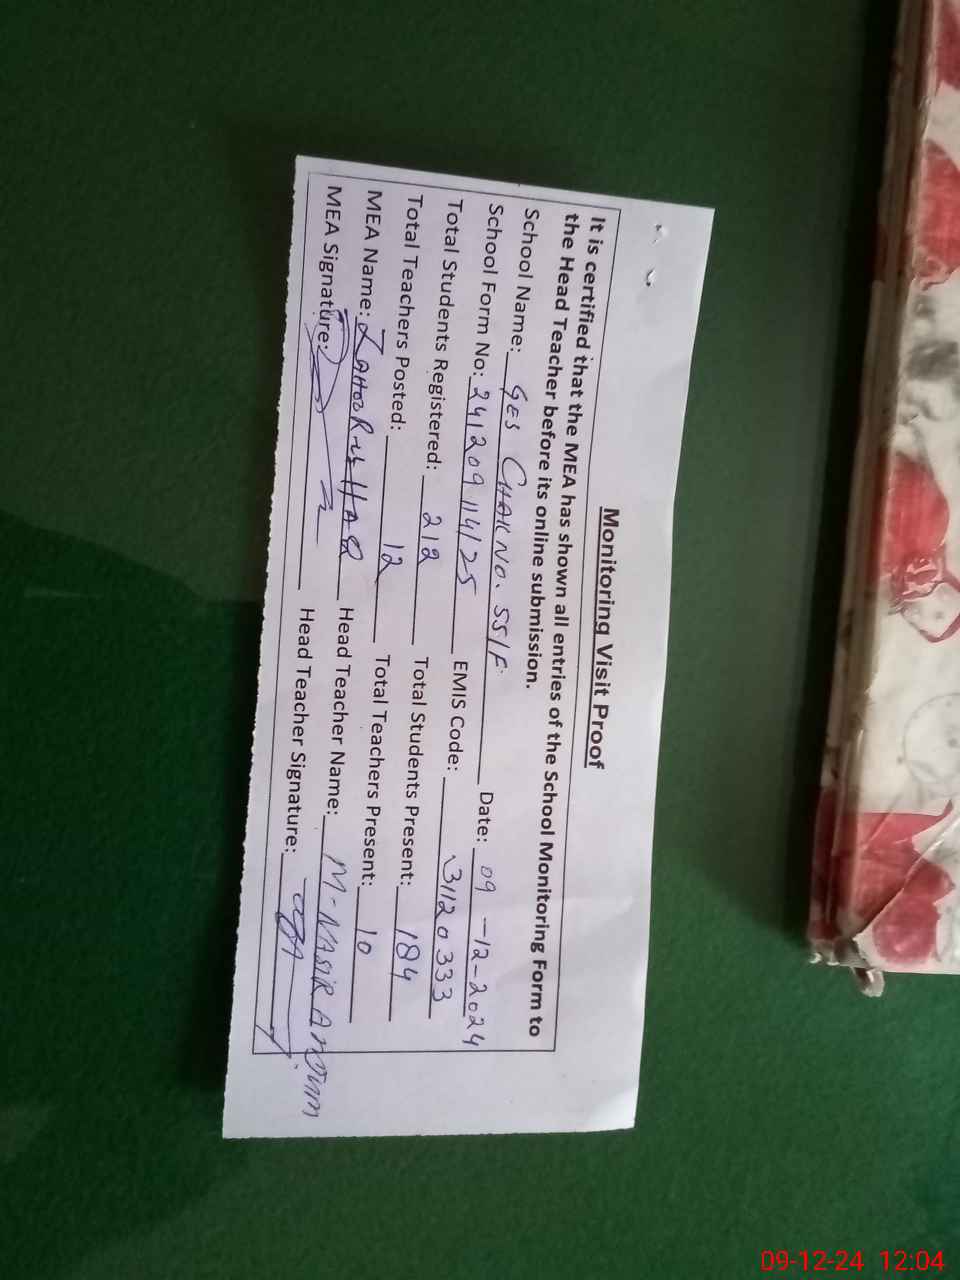 Monitoring Visit Proof
It is certified that the MEA has shown all entries of the School Monitoring Form to
the Head Teacher before its online submission.
School Name: GES CHAK NO. 55/F Date: 09-12-2024
School Form No: 24120911425 EMIS Code: 31120333
Total Students Registered: 212 Total Students Present: 184
Total Teachers Posted: 12 Total Teachers Present: 10
MEA Name: ZAHOOR-ul-HAQ Head Teacher Name: M-NASIR ANJUM
MEA Signature: Head Teacher Signature:
09-12-24 12:04